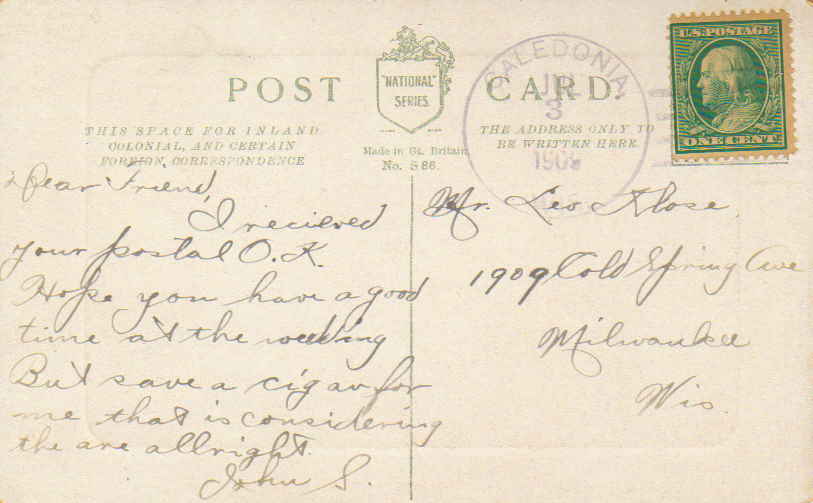 POST CARD
"NATIONAL"
SERIES.
THIS SPACE FOR INLAND
COLONIAL, AND CERTAIN
FOREIGN CORRESPONDENCE
Made in Gt. Britain
No. S 86.
THE ADDRESS ONLY TO
BE WRITTEN HERE.
CALEDONIA,
JUL
3
U.S. POSTAGE
ONE CENT
Dear Friend,
I recieved
your postal O.K.
Hope you have a good
time at the wedding
But save a cigar for
me that is considering
the are allright.
John S.
Mr. Leo Klose.
1909 Cold Spring Ave
Milwaukee
Wis.